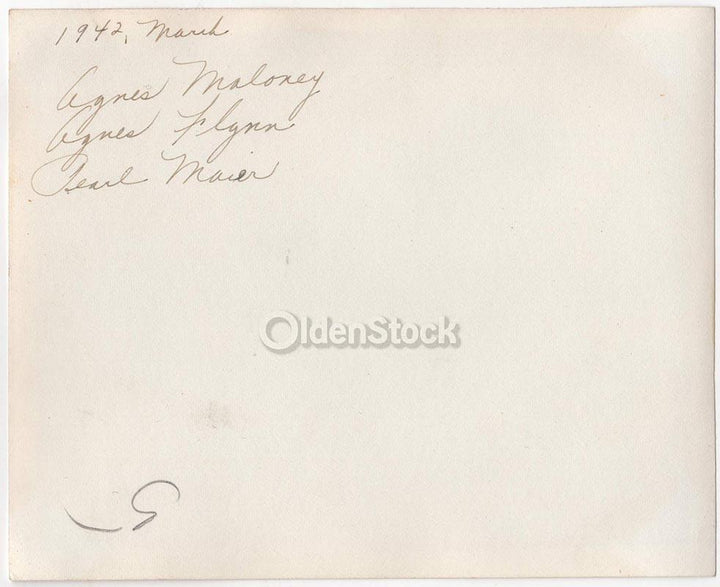 1942, March
Agnes Maloney
Agnes Flynn
Pearl Maier
OldenStock